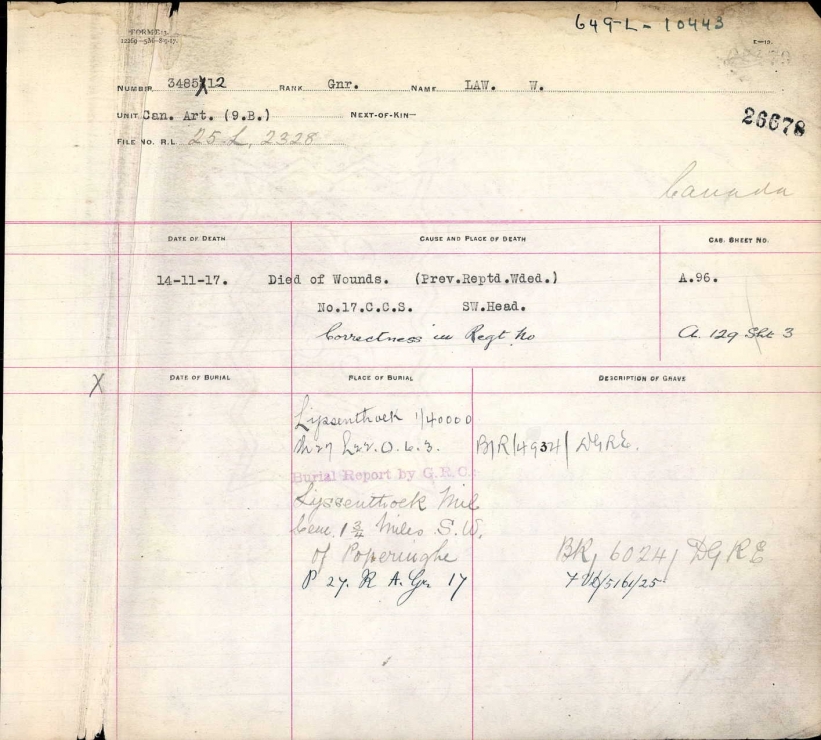 649-L-10443
FORM
E—19.
NUMBER 3485X12 RANK Gnr. NAME LAW. W.
UNIT Can. Art. (9.B.) NEXT-OF-KIN—
26678
FILE NO. R.L. 25 L, 2328
Canada
DATE OF DEATH CAUSE AND PLACE OF DEATH CAS. SHEET NO.
14-11-17. Died of Wounds. (Prev.Reptd.Wded.) A.96.
No.17.C.C.S. SW.Head.
Correctness in Regt No A. 129 Sht 3
X DATE OF BURIAL PLACE OF BURIAL DESCRIPTION OF GRAVE
Lyssenthoek 1/40000
27 L22.D.6.3. B/R/4934/ DGRE.
Burial Report by G.R.C.
Lyssenthoek Mil
Cem. 1 3/4 Miles S.W.
of Poperinghe BR/ 6024/ DGRE
P 27. R A. Gr. 17